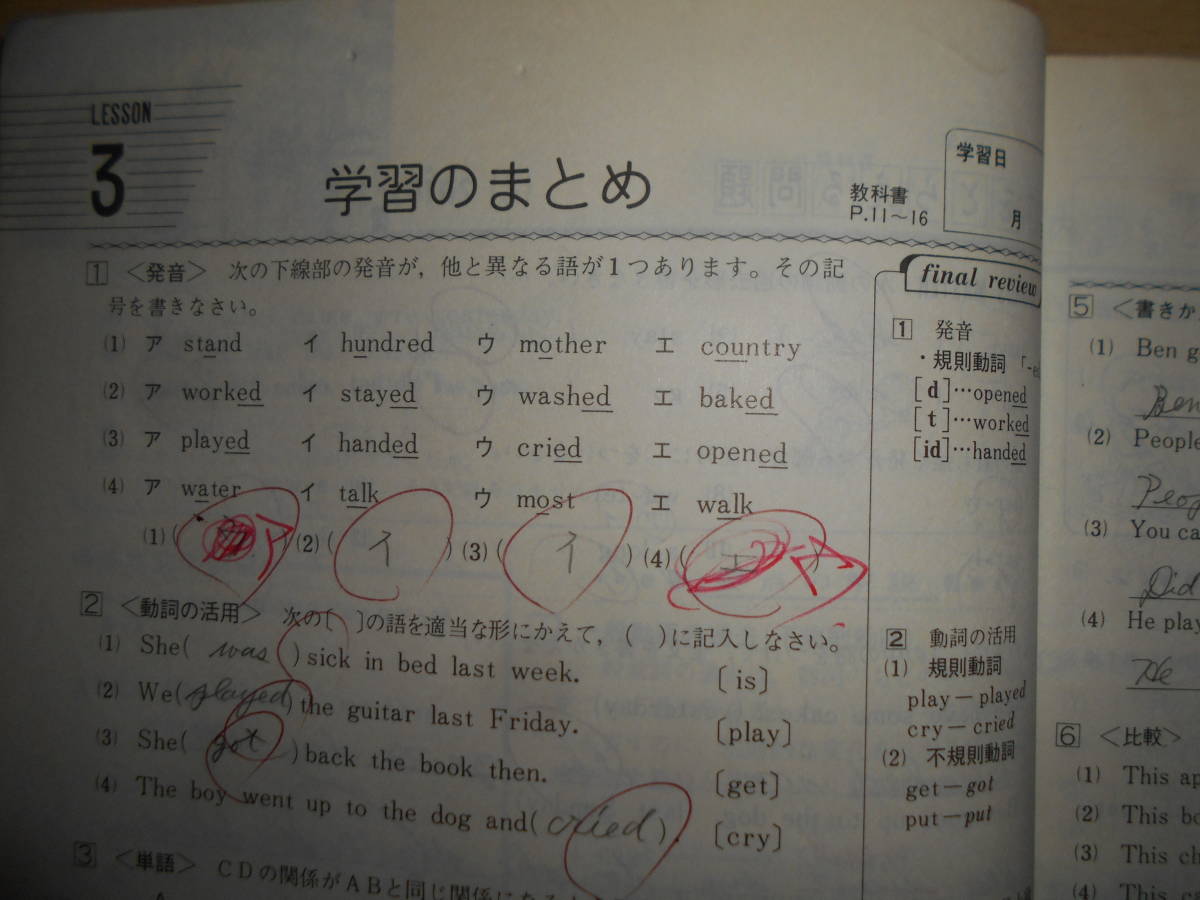 LESSON
3
学習のまとめ
教科書
P.11～16
学習日
月
1 〈発音〉 次の下線部の発音が，他と異なる語が1つあります。その記
号を書きなさい。
(1) ア stand イ hundred ウ mother エ country
(2) ア worked イ stayed ウ washed エ baked
(3) ア played イ handed ウ cried エ opened
(4) ア water イ talk ウ most エ walk
(1) ( ア ) (2) ( イ ) (3) ( イ ) (4) ( )
2 〈動詞の活用〉 次の〔 〕の語を適当な形にかえて，( )に記入しなさい。
(1) She( was )sick in bed last week. 〔is〕
(2) We(played)the guitar last Friday. 〔play〕
(3) She( got )back the book then. 〔get〕
(4) The boy went up to the dog and(cried). 〔cry〕
3 〈単語〉 CDの関係がABと同じ関係になる
final review
1 発音
・規則動詞「-e
[d]…opened
[t]…worked
[id]…handed
2 動詞の活用
(1) 規則動詞
play－played
cry－cried
(2) 不規則動詞
get－got
put－put
5 〈書きか
(1) Ben g
Ben
(2) People
Peop
(3) You ca
Did
(4) He play
He
6 〈比較〉
(1) This ap
(2) This bo
(3) This ch
(4) This ca